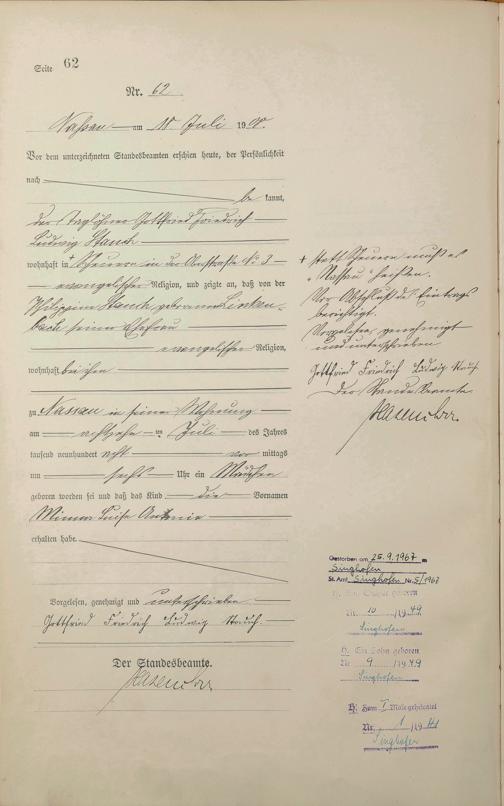 Seite 62
Nr. 62
Nassau am 18 Juli 1908.
Vor dem unterzeichneten Standesbeamten erschien heute, der Persönlichkeit
nach be kannt,
der Taglöhner Gottfried Friedrich
Ludwig Stauch
wohnhaft in + Scheuern in der Obertraße No 3
evangelischer Religion, und zeigte an, daß von der
Philippine Stauch, geborenen Linken-
bach seiner Ehefrau
evangelischer Religion,
wohnhaft bei ihm
zu Nassau in seiner Wohnung
am achtzehnten Juli des Jahres
tausend neunhundert acht vor mittags
um sechs Uhr ein Mädchen
geboren worden sei und daß das Kind die Vornamen
Minna Luise Antonie
erhalten habe.
Vorgelesen, genehmigt und unterschrieben
Gottfried Friedrich Ludwig Stauch.
Der Standesbeamte.
+ statt Scheuern muß es
"Nassau" heißen.
Vor Abschluß des Eintrags
berichtigt.
Vorgelesen, genehmigt
und unterschrieben
Gottfried Friedrich Ludwig Stauch
Der Standesbeamte
Gestorben am 25.9.1967 in
Singhofen
St. Amt Singhofen Nr. 5/1967
geboren
Nr. 10 /1949
Singhofen
H. Ein Sohn geboren
Nr 9 /1949
Singhofen
H: Zum I Male geheiratet
Nr. 1 /19
Singhofen